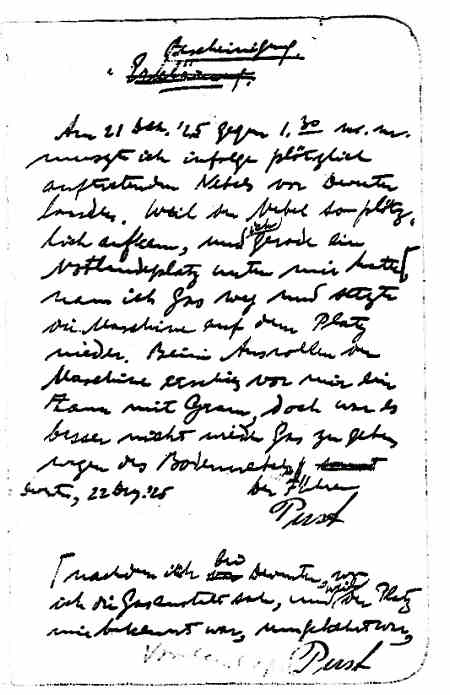 Bescheinigung.
Erklärung.
Am 21 Dez. '25 gegen 1.30 n. m.
muszt ich infolge plötzlich
auftretenden Nebels vor Deventer
landen. Weil der Nebel so plötz-
lich aufkam, und ich gerade ein
Notlandeplatz unter mir hatte,
nam ich Gas weg und setzte
die Maschine auf dem Platz
nieder. Beim Ausrollen der
Maschine erschien vor mir ein
Zaun mit Graven, doch war es
besser nicht wieder Gas zu geben
wegen des Bodennebels
22 Dez. '25 der Führer
Perst
nachdem ich bei Deventer, wo
ich die Gasanstalt sah, und weil der Platz
mir bekannt war, umgekehrt war,
Perst